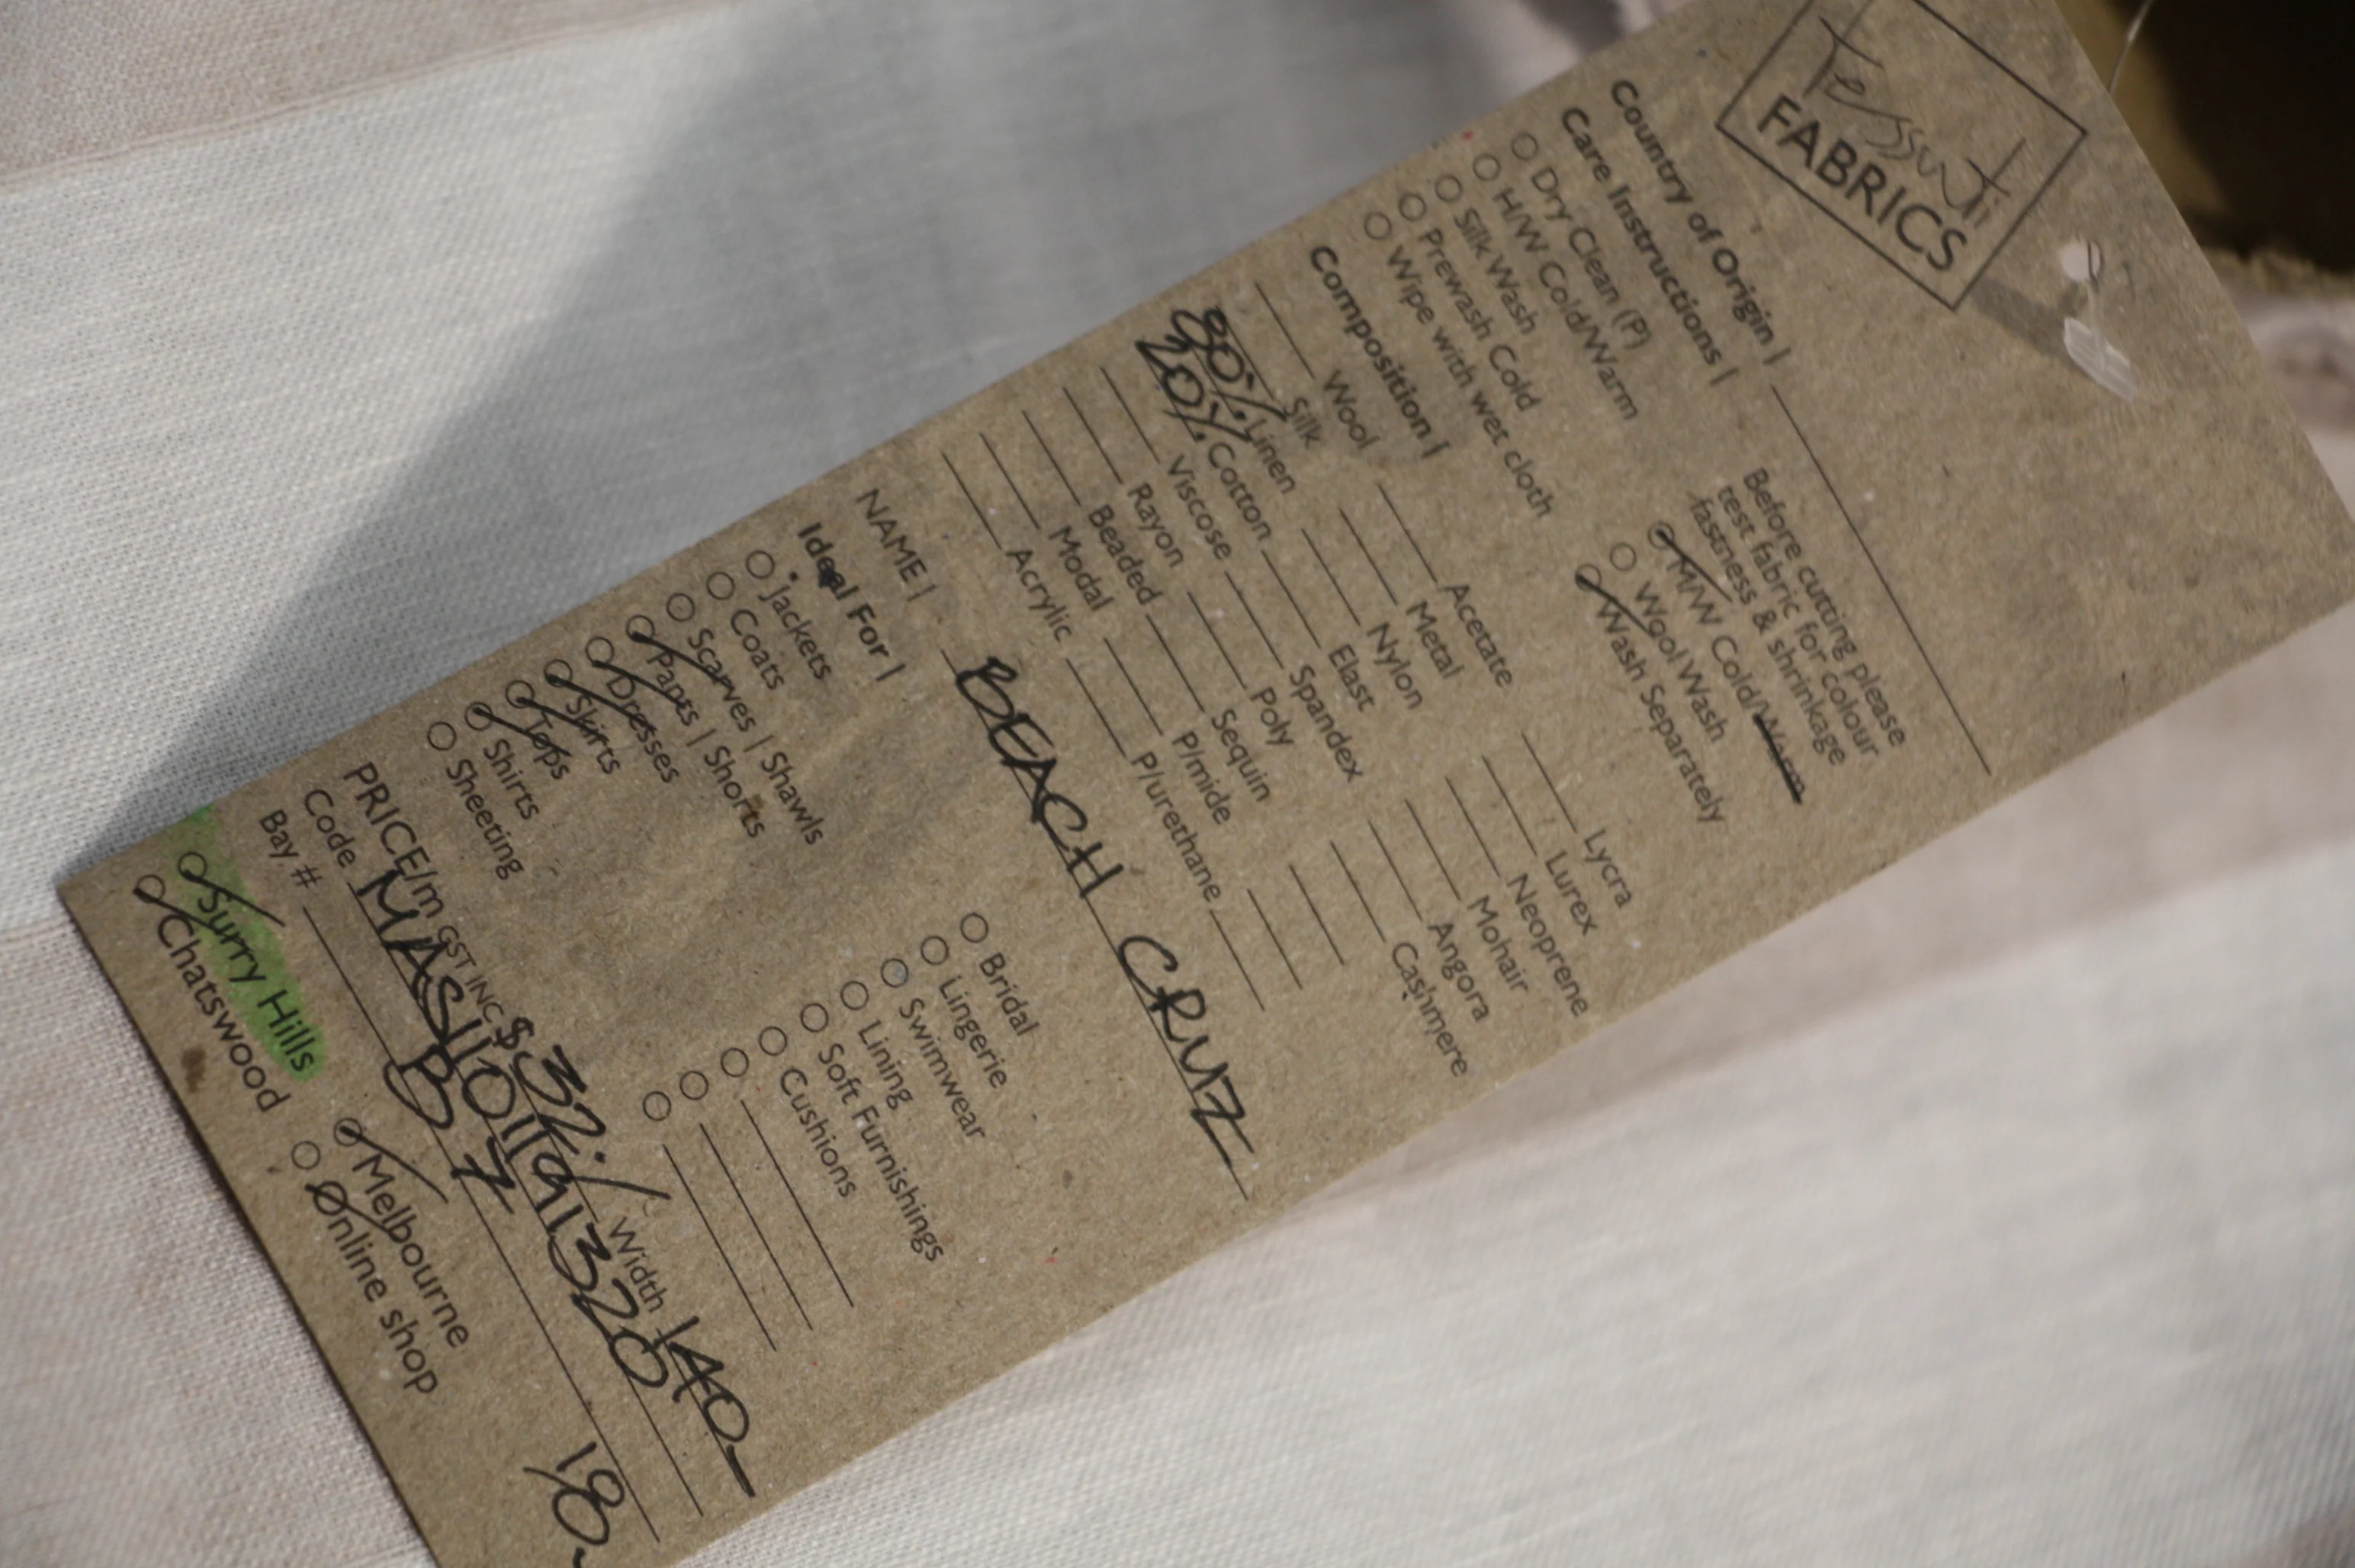 Tessuti
FABRICS
Country of Origin |
Care Instructions |
Before cutting please
test fabric for colour
fastness & shrinkage
Dry Clean (P)
H/W Cold/Warm
Silk Wash
Prewash Cold
Wipe with wet cloth
M/W Cold/Warm
Wool Wash
Wash Separately
Composition |
Wool Acetate Lycra
Silk Metal Lurex
80% Linen Nylon Neoprene
20% Cotton Elast Mohair
Viscose Spandex Angora
Rayon Poly Cashmere
Beaded Sequin
Modal P/mide
Acrylic P/urethane
NAME | BEACH CRUZ
Ideal For |
Jackets
Coats
Scarves | Shawls
Pants | Shorts
Dresses
Skirts
Tops
Shirts
Sheeting
Bridal
Lingerie
Swimwear
Lining
Soft Furnishings
Cushions
PRICE/m GST INC $32./ Width 140
Code
Bay # B 7
18
Surry Hills
Chatswood
Melbourne
Online shop